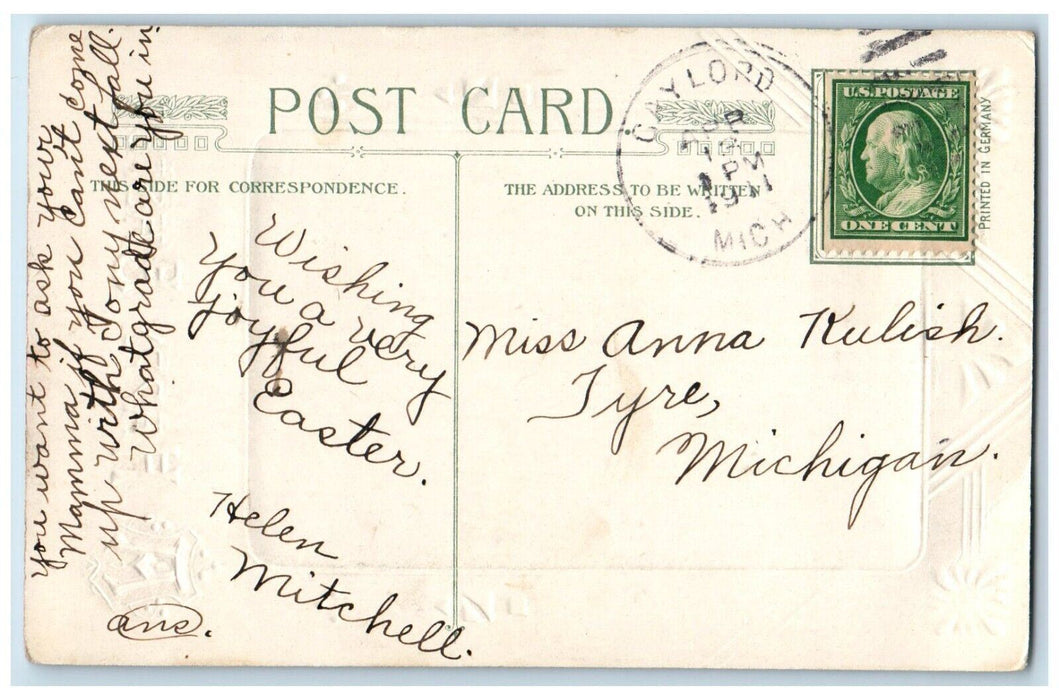 POST CARD
THIS SIDE FOR CORRESPONDENCE.
THE ADDRESS TO BE WRITTEN
ON THIS SIDE.
GAYLORD
APR
1 PM
1911
MICH
U.S. POSTAGE
ONE CENT
PRINTED IN GERMANY
you want to ask your
Mamma if you can't come
up with Tony next fall.
What grade are you in
Wishing
you a very
joyful
Easter.
Helen
Mitchell.
ans.
Miss Anna Kulish.
Tyre,
Michigan.